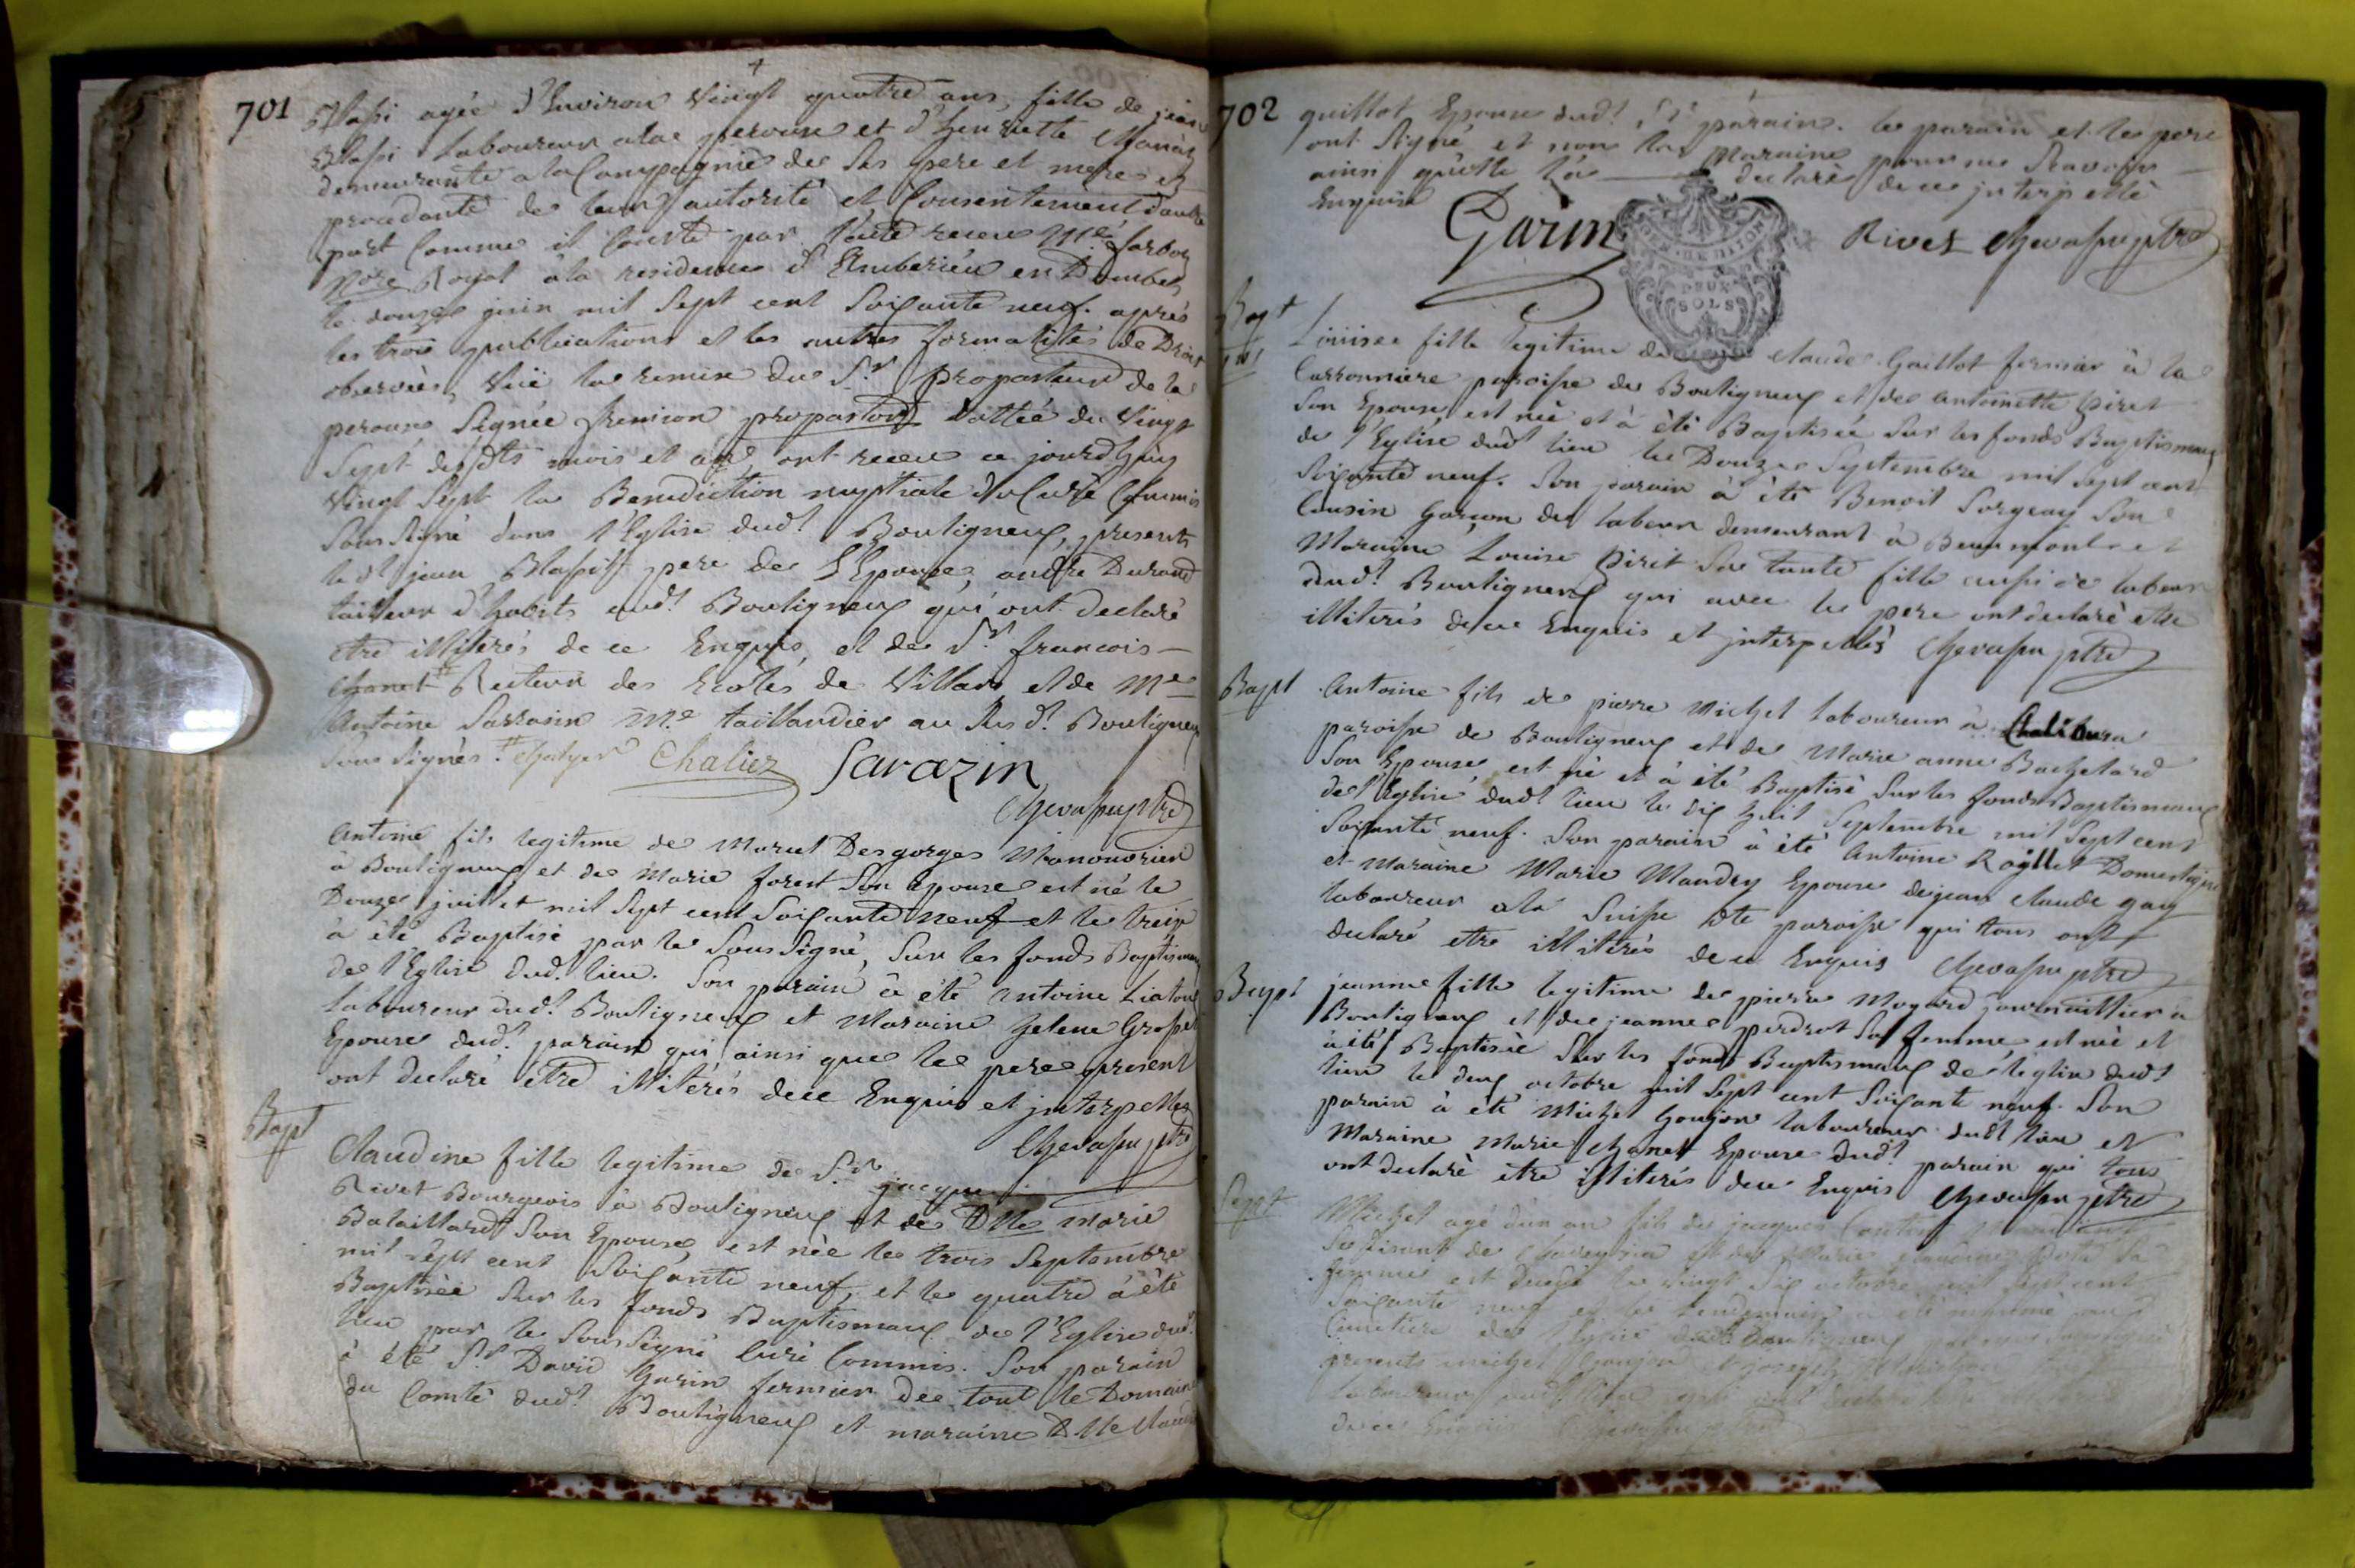 701
agée d'Environ Vingt quatre ans, fille de jean
laboureur a la perouse et d'henriette
demeurante a la Compagnie de ses pere et mere et
procedante de leur autorité et Consentement d'autre
part Comme il Conste par l'acte receu Me
Nore Royal à la residence d'Amberieu en Dombes
le douze juin mil sept cent soixante neuf. après
les trois publications et les autres formalités de Droit
observées, Vüe la remise du Sr propasteur de la
perouse Signée propasteur dattée du Vingt
sept desdts mois et an, ont receu ce jourd'huy
Vingt sept la Benediction nuptiale du Curé Commis
Soussigné dans l'Eglise dudt Bouligneux, presents
le dt jean pere de L'Epouse, andré Durand
tailleur d'habits audt Bouligneux qui ont declaré
etre illiterés de ce Enquis, et de Sr francois
Chanet Recteur des Ecoles de Villars, et de Me
Antoine Sarrasin Me taillandier au dt Bouligneux
Sous Signés. Chaliez Sarazin
Chevassu ptre
Antoine fils legitime de Marcel Desgorges
à Bouligneux et de Marie forest Son epouse est né le
Douze juillet mil sept cent Soixante neuf et le treize
à été Baptisé par le SousSigné, Sur les fonds Baptismaux
de l'Eglise dud. lieu. Son parain à été Antoine
laboureur dudt Bouligneux et Maraine helene
Epouse dudt parain qui ainsi que le pere present
ont declaré être illiterés de ce Enquis et jnterpellés
Chevassu ptre
Bapt
Claudine fille legitime de Sr jacques
Rivet Bourgeois à Bouligneux et de Dlle Marie
Bataillard Son Epouse, est née le trois Septembre
mil sept cent Soixante neuf, et le quatre à été
Baptisée Sur les fonds Baptismaux de l'Eglise dudt
lieu par le SousSigné Curé Commis. Son parain
à été Sr David Garin fermier de tout le Domaine
du Comté dudt Bouligneux et maraine Dlle
702
guillot Epouse dudt Sr parain. le parain et le pere
ont Signé et non la Maraine pour ne Scavoir
ainsi qu'elle l'a declaré de ce jnterpellé
Enquise
Garin Rivet Chevassu ptre
DEUX
SOLS
Bapt
Louise fille legitime de claude Guillot fermier à la
paroisse de Bouligneux et de antoinette Piret
Son Epouse, est née et à été Baptisée Sur les fonds Baptismaux
de l'Eglise dudt lieu le Douze Septembre mil sept cent
Soixante neuf. Son parain à été Benoit Sorgeay Son
Cousin Garçon de labeur demeurant à Beaumont et
Maraine Louise Piret Sa tante fille aussi de labeur
dudt Bouligneux qui avec le pere ont declaré etre
illiterés de ce Enquis et jnterpellés Chevassu ptre
Bapt
Antoine fils de pierre Michel laboureur à
paroisse de Bouligneux et de Marie anne Bachelard
Son Epouse est né et à été Baptisé Sur les fonds Baptismaux
de l'Eglise dudt lieu le dix huit Septembre mil Sept cent
Soixante neuf. Son parain à été Antoine Domestique
et Maraine Marie Mandry Epouse de jean claude gay
laboureur a la Suisse dte paroisse qui tous ont
declaré etre illiterés de ce Enquis Chevassu ptre
Bapt
jeanne fille legitime de pierre Moyard journaillier à
Bouligneux et de jeanne perdrot Sa femme, est née et
à été Baptisée Sur les fonds Baptismaux de l'eglise dudt
lieu le deux octobre mil Sept cent Soixante neuf. Son
parain à été Michel Goujon laboureur dudt lieu et
Maraine Marie Chanet Epouse dudt parain qui tous
ont declaré etre illiterés de ce Enquis Chevassu ptre
Michel agé d'un an fils de jacques
Se disant de et de Marie
femme est Decedé le Vingt Six octobre mil Sept cent
Soixante neuf et le lendemain à été inhumé au
Cimetiere de l'Eglise dudt Bouligneux
presents michel Goujon joseph
laboureurs audt lieu qui ont
de ce Enquis Chevassu ptre